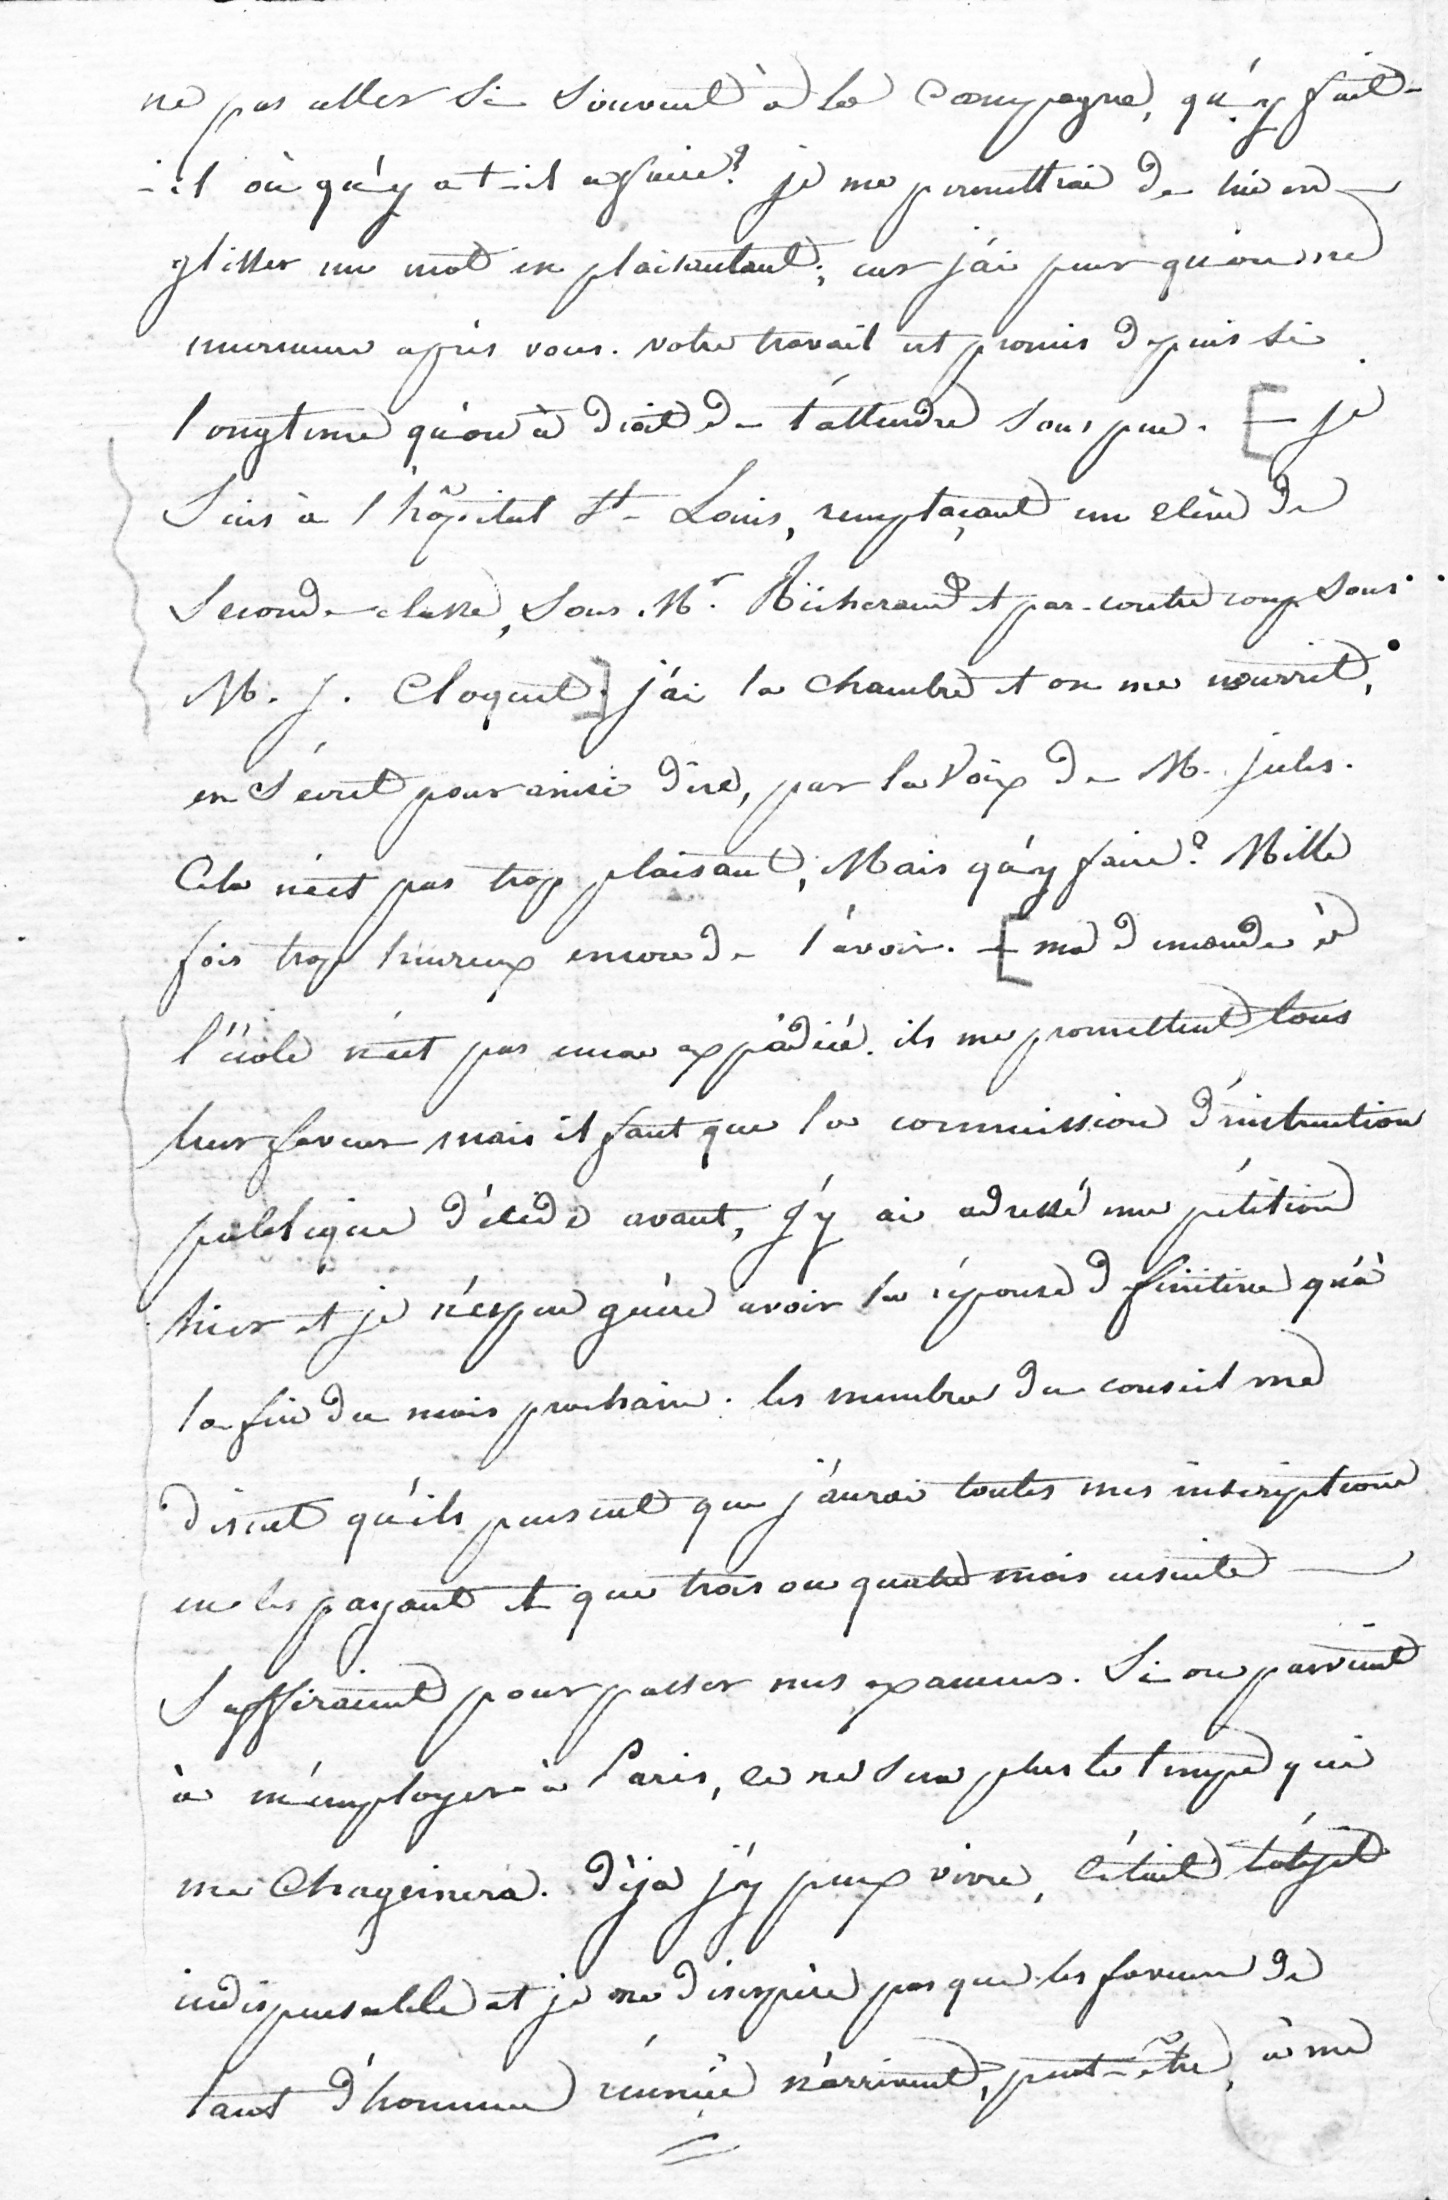 ne pas aller si souvent à la Campagne, qu'y fait-
-il où qu'y a t-il a faire? je me permettrai de lui en
glisser un mot en plaisantant; car j'ai peur qu'on ne
murmure après vous. votre travail est promis depuis si
longtems qu'on à droit de l'attendre sous peu. [— je
Suis à l'hôpital St Louis, remplaçant un elève de
Seconde classe, Sous Mr. Richerand et par-contre coup sous
M. J. Cloquet] j'ai la chambre et on me nourrit,
en Sécret pour ainsi dire, par la Voix de M. jules.
Cela n'est pas trop plaisant, Mais qu'y faire? Mille
fois trop heureux encore de l'avoir. [— ma demande à
l'école n'est pas encore expédiée. ils me promettent tous
leur faveur mais il faut que la commission d'instruction
publique décide avant, j'y ai adressé une pétition
hier et je n'espere guère avoir la réponse définitive qu'à
la fin du mois prochain. les membres du conseil me
disent qu'ils pensent que j'aurai toutes mes inscriptions
en les payant et que trois ou quatre mois ensuite
Suffiraient pour passer mes examens. Si on parvient
à m'employer à Paris, ce ne sera plus le temps qui
me Chagrinera. Déja j'y peux vivre, c'était l'objet
indispensable et je ne désespère pas que les faveurs de
tant d'hommes réunies n'arrivent, peut-être, à me